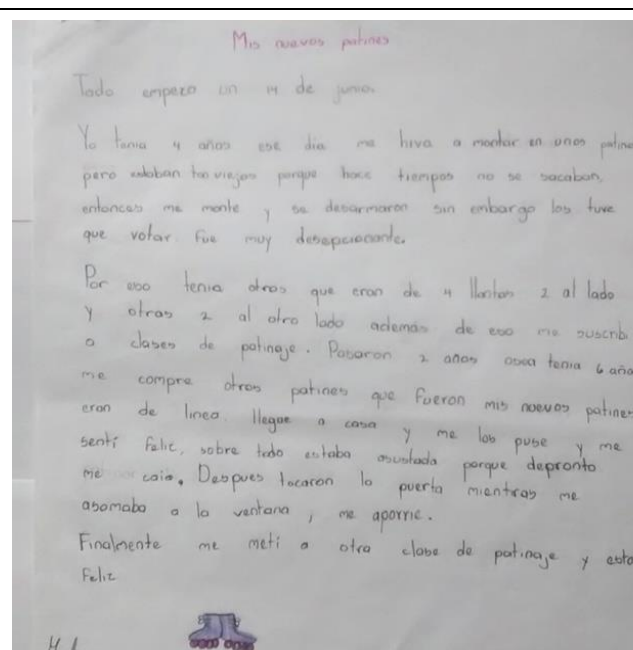 Mis nuevos patines
Todo empezo un 14 de junio.
Yo tenia 4 años ese dia me hiva a montar en unos patine
pero estaban tan viejos porque hace tiempos no se sacaban,
entonces me monte y se desarmaron sin embargo los tuve
que votar. Fue muy desepcionante.
Por eso tenia otros que eran de 4 llantas 2 al lado
y otras 2 al otro lado además de eso me suscribi
a clases de patinaje. Pasaron 2 años osea tenia 6 año
me compre otros patines que fueron mis nuevos patines
eran de linea. llegue a casa y me los puse y me
sentí feliz, sobre todo estaba asustada porque depronto
me caia. Despues tocaron la puerta mientras me
asomaba a la ventana, me aporrie.
Finalmente me metí a otra clase de patinaje y esta
Feliz